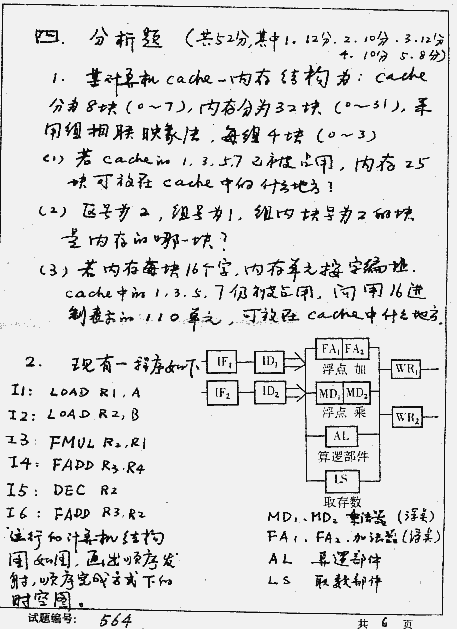 四. 分析题 (共52分,其中1.12分.2.10分.3.12分
4.10分 5.8分)
1. 某计算机cache-内存结构为: cache
分为8块(0~7), 内存分为32块(0~31), 采
用组相联映象法, 每组4块(0~3)
(1) 若cache的1.3.5.7已被占用, 内存25
块可放在cache中的什么地方?
(2) 区号为2, 组号为1, 组内块号为2的块
是内存的哪一块?
(3) 若内存每块16个字, 内存单元按字编址.
cache中的1.3.5.7仍被占用, 问用16进
制表示的110单元, 可放在cache中什么地方.
2. 现有一程序如下
I1: LOAD R1,A
I2: LOAD R2,B
I3: FMUL R2,R1
I4: FADD R3,R4
I5: DEC R2
I6: FADD R3,R2
运行的计算机结构
图如图, 画出顺序发
射,顺序完成方式下的
时空图。
IF1 ID1 FA1 FA2 WR1
浮点 加
IF2 ID2 MD1 MD2 WR2
浮点 乘
AL
算逻部件
LS
取存数
MD1.MD2 乘法器(浮点)
FA1.FA2.加法器(浮点)
AL 算逻部件
LS 取数部件
试题编号: 564 共 6 页